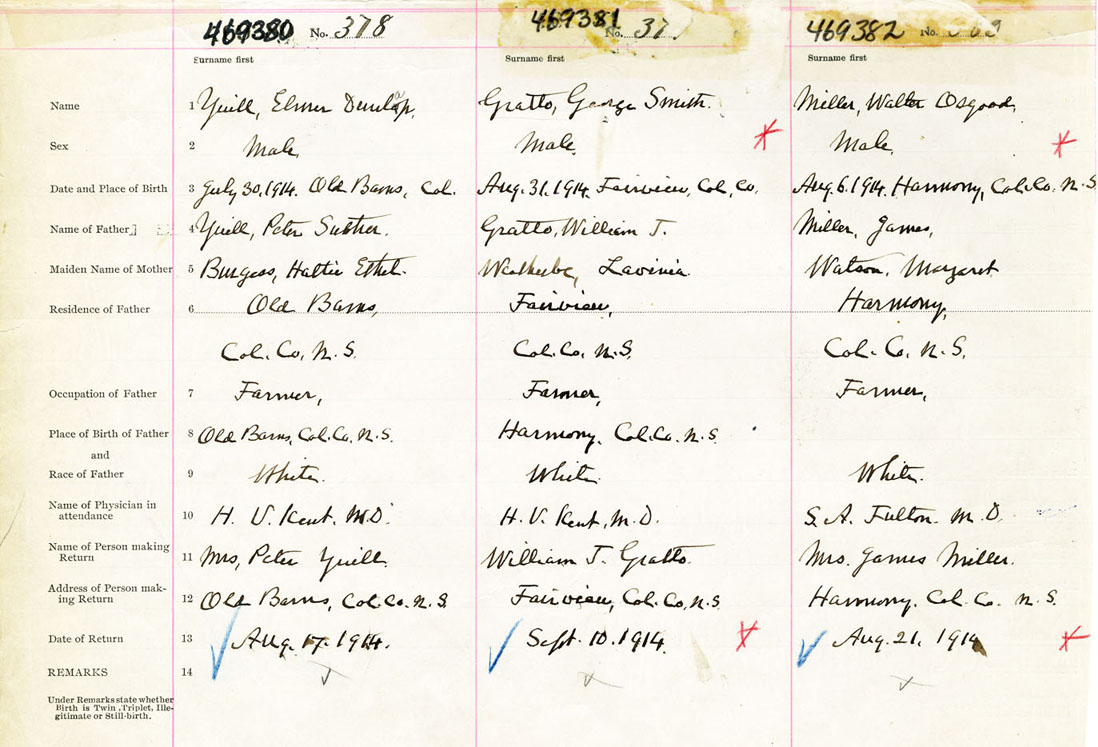 469380 No. 378 469381 No. 37 469382 No.
Surname first Surname first Surname first
Name 1 Yuill, Elmer Dunlap. Gratto, George Smith. Miller, Walter Osgood,
Sex 2 Male Male Male
Date and Place of Birth 3 July 30, 1914. Old Barns, Col. Aug. 31, 1914 Fairview, Col. Co. Aug. 6. 1914. Harmony, Col. Co. N. S.
Name of Father 4 Yuill, Peter Gratto, William J. Miller, James,
Maiden Name of Mother 5 Burgess, Hattie Ethel. Lavinia Watson, Margaret
Residence of Father 6 Old Barns, Fairview, Harmony,
Col. Co, N. S. Col. Co, N. S. Col. Co, N. S,
Occupation of Father 7 Farmer, Farmer, Farmer,
Place of Birth of Father 8 Old Barns, Col. Co, N. S. Harmony. Col. Co. N. S.
and
Race of Father 9 White. White White.
Name of Physician in
attendance 10 H. V. Kent. M.D. H. V. Kent, M. D. S. A. Fulton. M. D.
Name of Person making
Return 11 Mrs, Peter Yuill William J. Gratto. Mrs. James Miller.
Address of Person mak-
ing Return 12 Old Barns, Col. Co. N. S. Fairview, Col. Co, N. S. Harmony. Col. Co. N. S.
Date of Return 13 Aug. 17. 1914. Sept. 10. 1914. Aug. 21. 1914
REMARKS 14
Under Remarks state whether
Birth is Twin, Triplet, Ille-
gitimate or Still-birth.